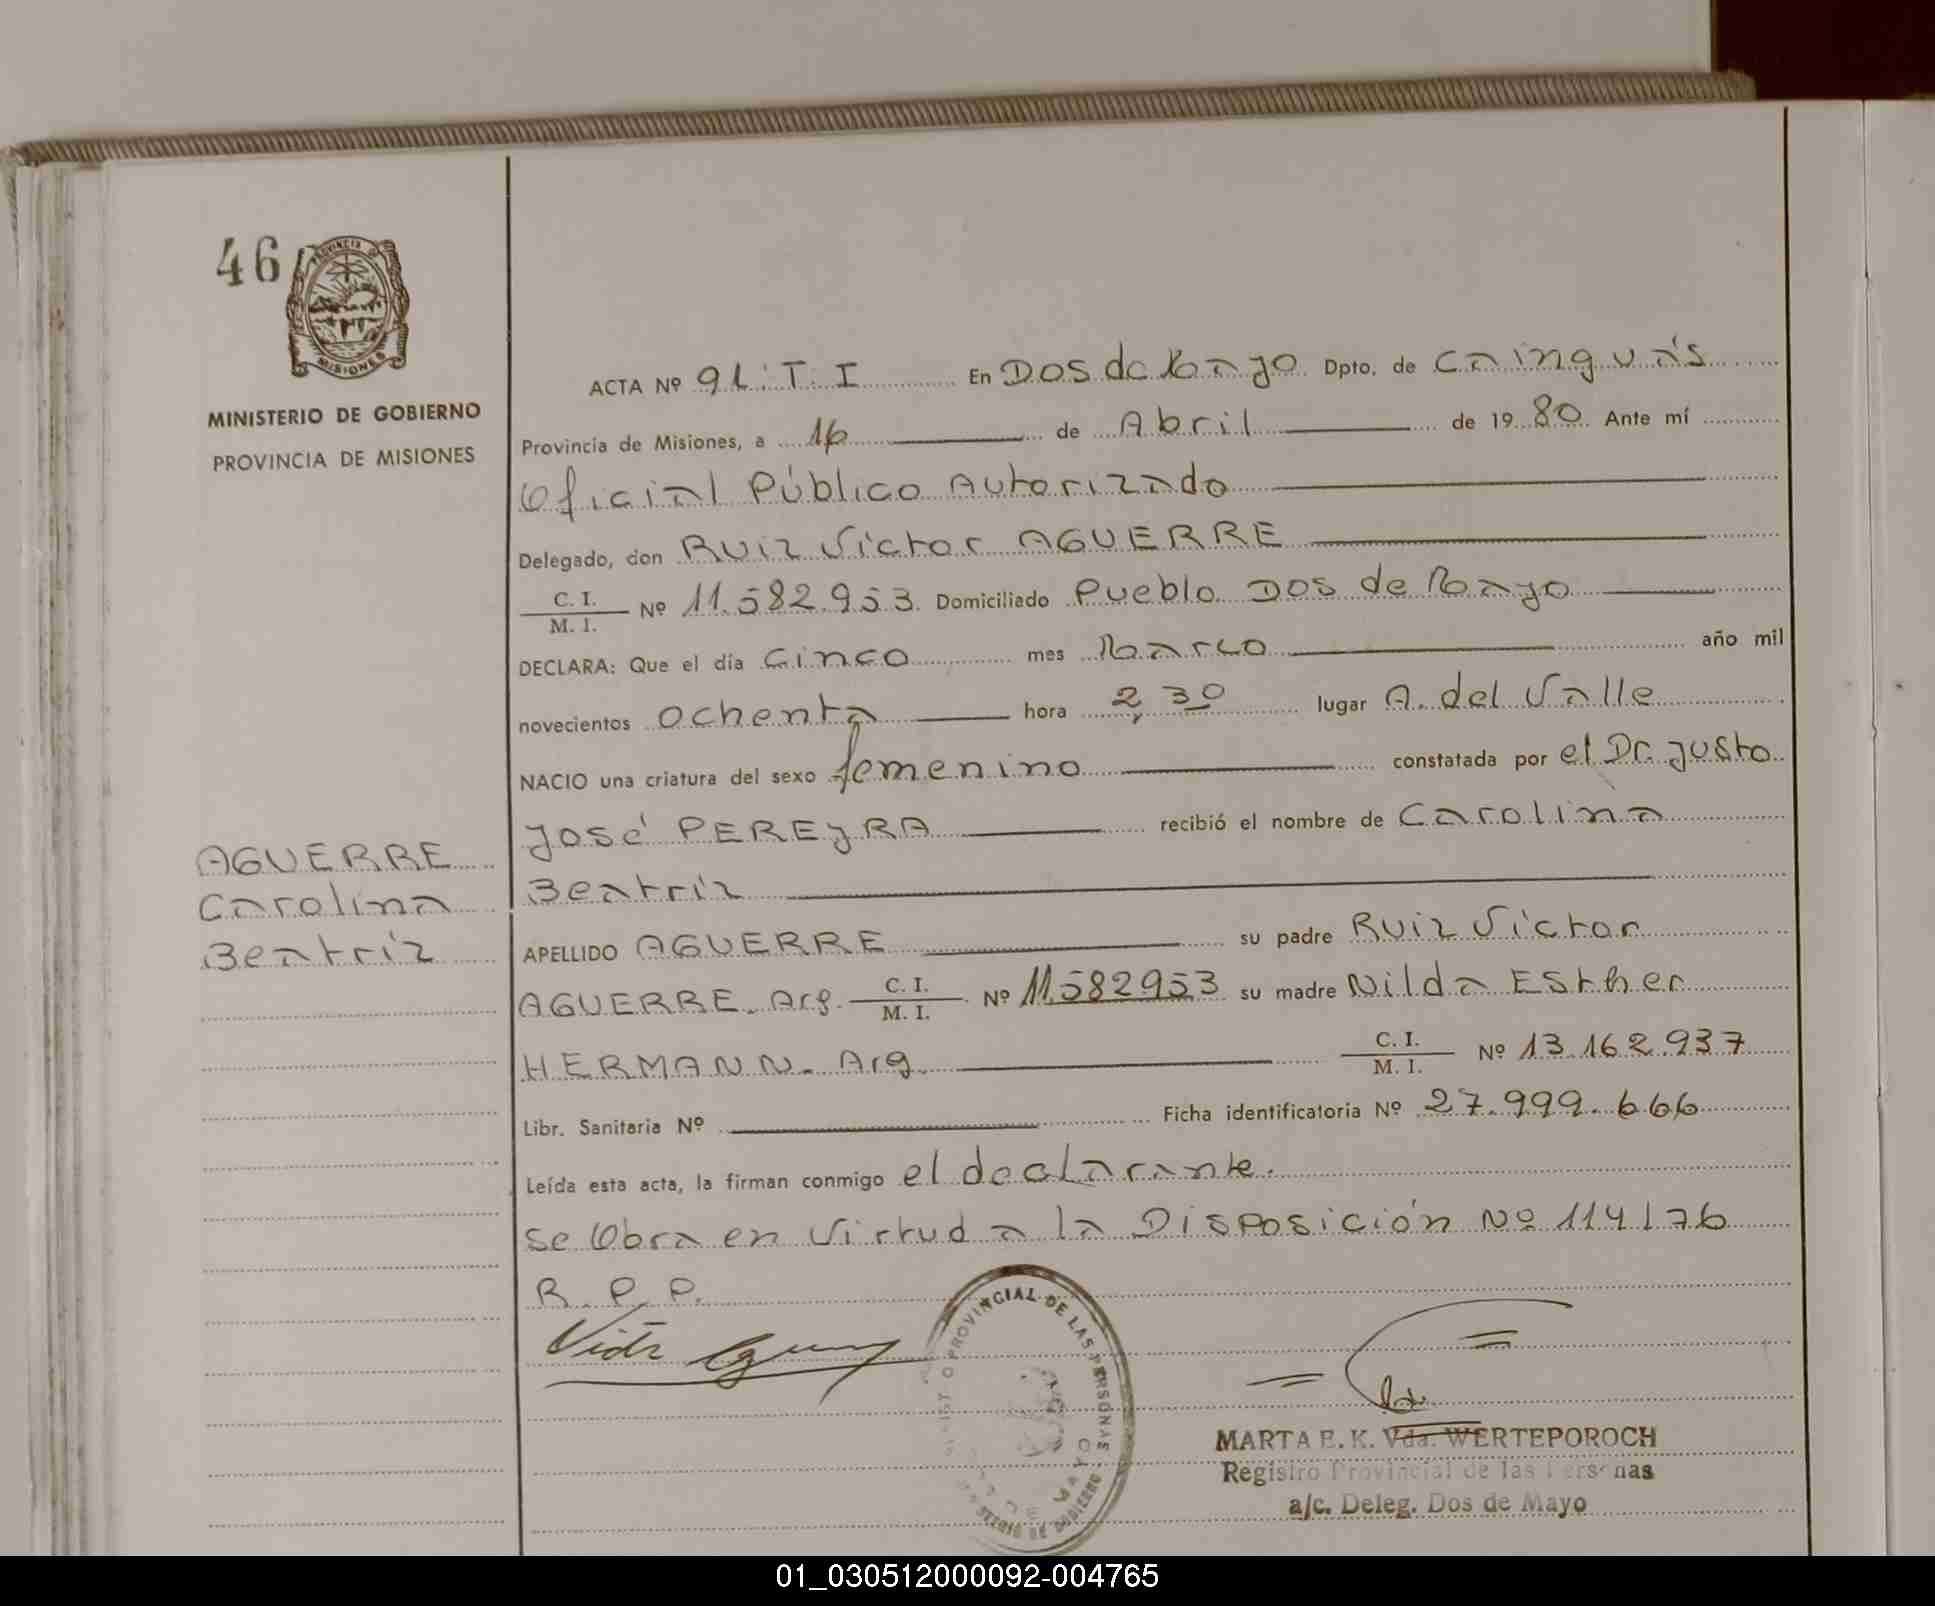 46
PROVINCIA DE
MISIONES
MINISTERIO DE GOBIERNO
PROVINCIA DE MISIONES
ACTA Nº 91. T. I En Dos de Mayo Dpto. de Cainguás
Provincia de Misiones, a 16 de Abril de 1980 Ante mí
Oficial Público Autorizado
Delegado, don Ruiz Victor AGUERRE
C. I.
M. I. Nº 11.582.953 Domiciliado Pueblo Dos de Mayo
DECLARA: Que el día Cinco mes Marzo año mil
novecientos ochenta hora 2,30 lugar A. del Valle
NACIO una criatura del sexo femenino constatada por el Dr. Justo
José PEREYRA recibió el nombre de Carolina
Beatríz
AGUERRE
Carolina
Beatríz
APELLIDO AGUERRE su padre Ruiz Victor
AGUERRE. Arg. C. I.
M. I. Nº 11.582953 su madre Nilda Esther
HERMANN. Arg. C. I.
M. I. Nº 13.162.937
Libr. Sanitaria Nº Ficha identificatoria Nº 27.999.666
Leída esta acta, la firman conmigo el declarante.
Se Obra en Virtud a la Disposición Nº 114/76
R. P. P.
PROVINCIAL DE LAS PERSONAS
MARTA E. K. Vda. WERTEPOROCH
Registro Provincial de las Personas
a/c. Deleg. Dos de Mayo
01_030512000092-004765